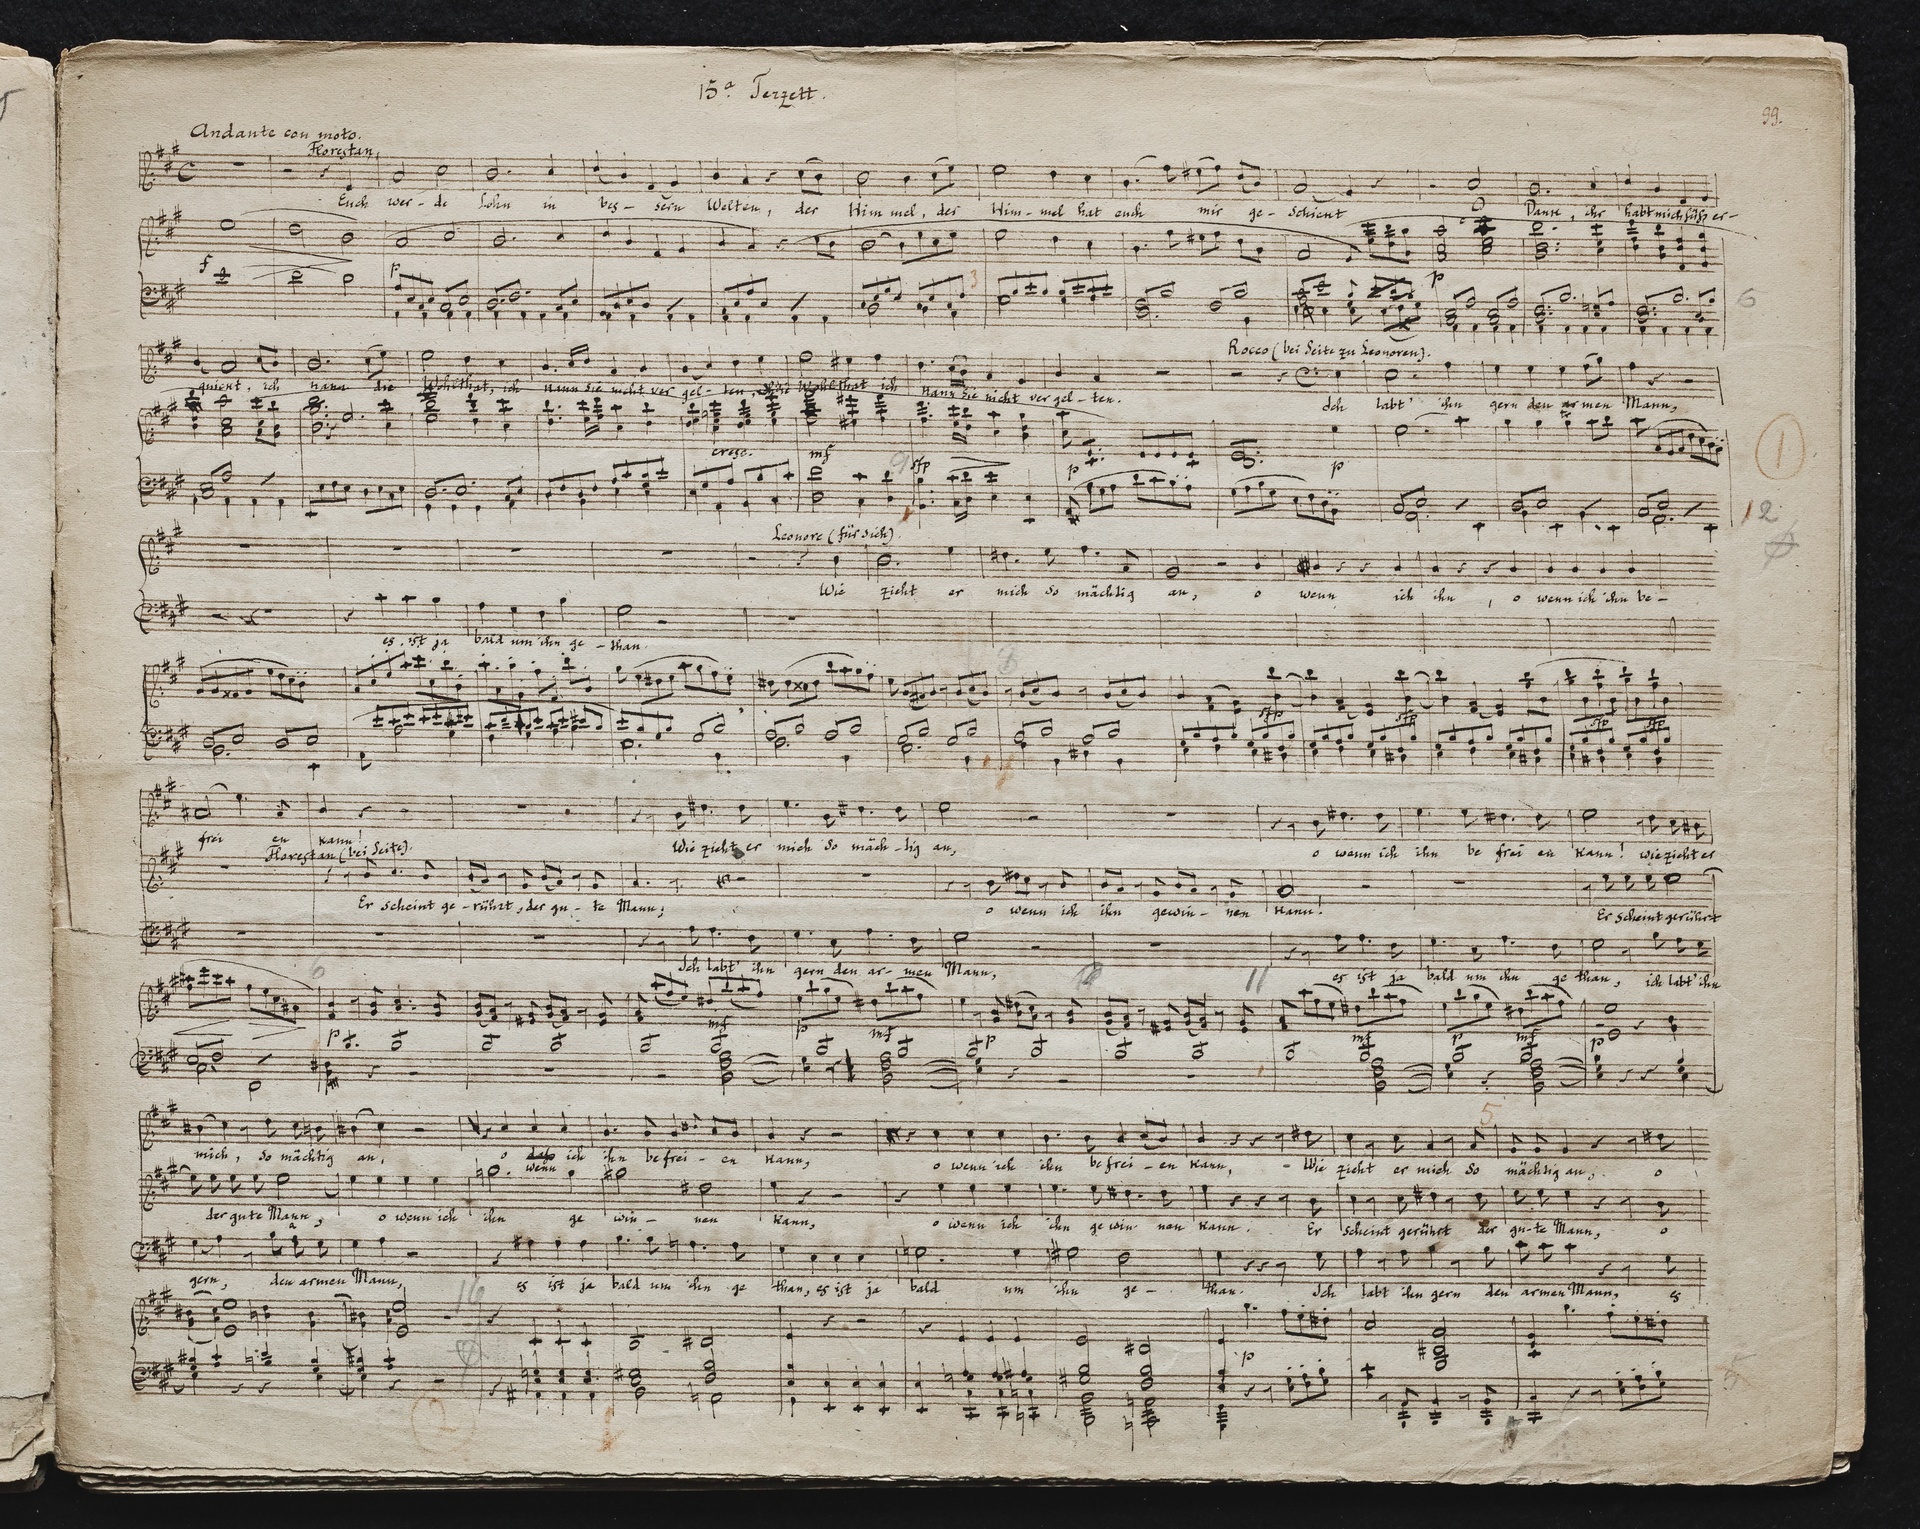 15ª Terzett.
99.
Andante con moto.
Florestan.
Euch wer-de Lohn in bes-sern Welten, der Him mel, der Him-mel hat euch mir ge-schickt
Dank, ihr habt mich süß er-
f
p
3
p
6
Rocco (bei Seite zu Leonoren).
quickt, ich kann die Wohlthat, ich kann sie nicht ver gel-ten, Wohlthat ich kann sie nicht ver gel-ten.
Ich labt' ihn gern den ar men Mann,
cresc. mf
9
sfp
p
p
1
12
Leonore (für sich).
Wie zieht er mich so mächtig an, o wenn ich ihn, o wenn ich ihn be-
es ist ja bald um ihn ge-than.
8
sfp sfp sfp sfp
frei en kann!
Wie zieht er mich so mäch-tig an, o wenn ich ihn be frei en kann! wie zieht er
Florestan (bei Seite).
Er scheint ge-rührt, der gu-te Mann, o wenn ich ihn gewin-nen kann! Er scheint gerührt
Ich labt' ihn gern den ar-men Mann, es ist ja bald um ihn ge than, ich labt' ihn
6
11
p mf p mf p mf p mf p
5
mich, so mächtig an, o wenn ich ihn befrei-en kann, o wenn ich ihn befrei-en kann, - Wie zieht er mich so mächtig an, o
der gute Mann, o wenn ich ihn ge win-nen kann, o wenn ich ihn ge win nen kann. Er scheint gerührt der gu-te Mann, o
gern, den armen Mann, es ist ja bald um ihn ge than, es ist ja bald um ihn ge-than. Ich labt ihn gern den armen Mann, es
16
p
5
2